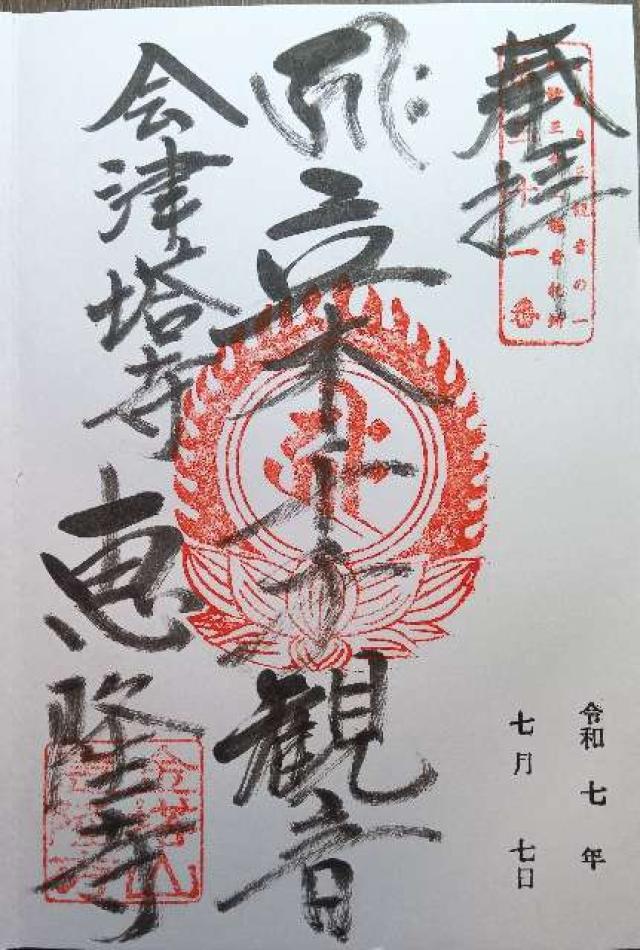 奉拝
三十一番
令和七年
七月七日
立木千手観音
会津塔寺
恵隆寺